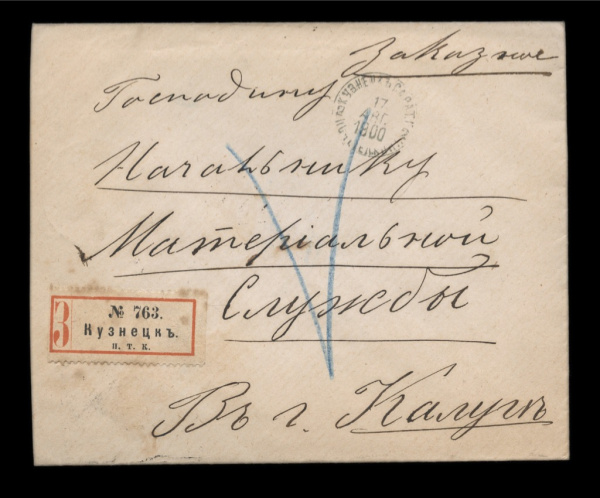 Заказное
Господину
КУЗНЕЦКЪ САРАТ.
17
АВГ.
1900
Начальнику
Матеріальной
Службы
З
№ 763.
Кузнецкъ.
п. т. к.
Въ г. Калугѣ